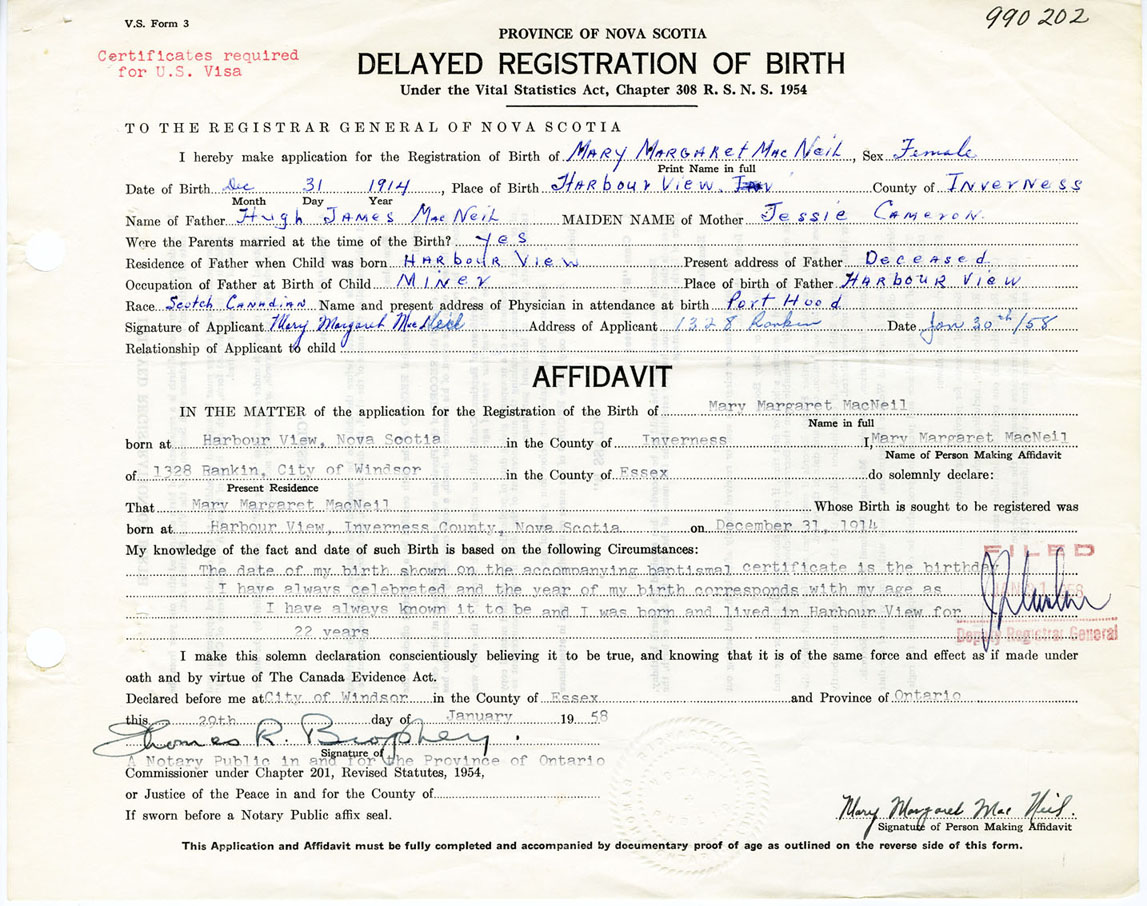 V.S. Form 3
990 202
Certificates required
for U.S. Visa
PROVINCE OF NOVA SCOTIA
DELAYED REGISTRATION OF BIRTH
Under the Vital Statistics Act, Chapter 308 R. S. N. S. 1954
TO THE REGISTRAR GENERAL OF NOVA SCOTIA
I hereby make application for the Registration of Birth of MARY MARGARET MAC NEIL, Sex Female
Print Name in full
Date of Birth Dec 31 1914, Place of Birth HARBOUR VIEW County of INVERNESS
Month Day Year
Name of Father Hugh JAMES MAC NEIL MAIDEN NAME of Mother Jessie CAMERON.
Were the Parents married at the time of the Birth? yes
Residence of Father when Child was born HARBOUR VIEW Present address of Father DECEASED
Occupation of Father at Birth of Child MINER Place of birth of Father HARBOUR VIEW
Race Scotch CANADIAN Name and present address of Physician in attendance at birth Port Hood
Signature of Applicant Mary Margaret MacNeil Address of Applicant 1328 Rankin Date Jan 30th/58
Relationship of Applicant to child
AFFIDAVIT
IN THE MATTER of the application for the Registration of the Birth of Mary Margaret MacNeil
Name in full
born at Harbour View, Nova Scotia in the County of Inverness I, Mary Margaret MacNeil
Name of Person Making Affidavit
of 1328 Rankin, City of Windsor in the County of Essex do solemnly declare:
Present Residence
That Mary Margaret MacNeil Whose Birth is sought to be registered was
born at Harbour View, Inverness County, Nova Scotia on December 31, 1914
My knowledge of the fact and date of such Birth is based on the following Circumstances:
The date of my birth shown on the accompanying baptismal certificate is the birthday
I have always celebrated and the year of my birth corresponds with my age as
I have always known it to be and I was born and lived in Harbour View for
22 years
FILED
Deputy Registrar General
I make this solemn declaration conscientiously believing it to be true, and knowing that it is of the same force and effect as if made under
oath and by virtue of The Canada Evidence Act.
Declared before me at City of Windsor in the County of Essex and Province of Ontario
this 29th day of January 19 58
Thomas R. Brophey.
Signature of
A Notary Public in and for the Province of Ontario
Commissioner under Chapter 201, Revised Statutes, 1954,
or Justice of the Peace in and for the County of
If sworn before a Notary Public affix seal.
Mary Margaret Mac Neil.
Signature of Person Making Affidavit
This Application and Affidavit must be fully completed and accompanied by documentary proof of age as outlined on the reverse side of this form.